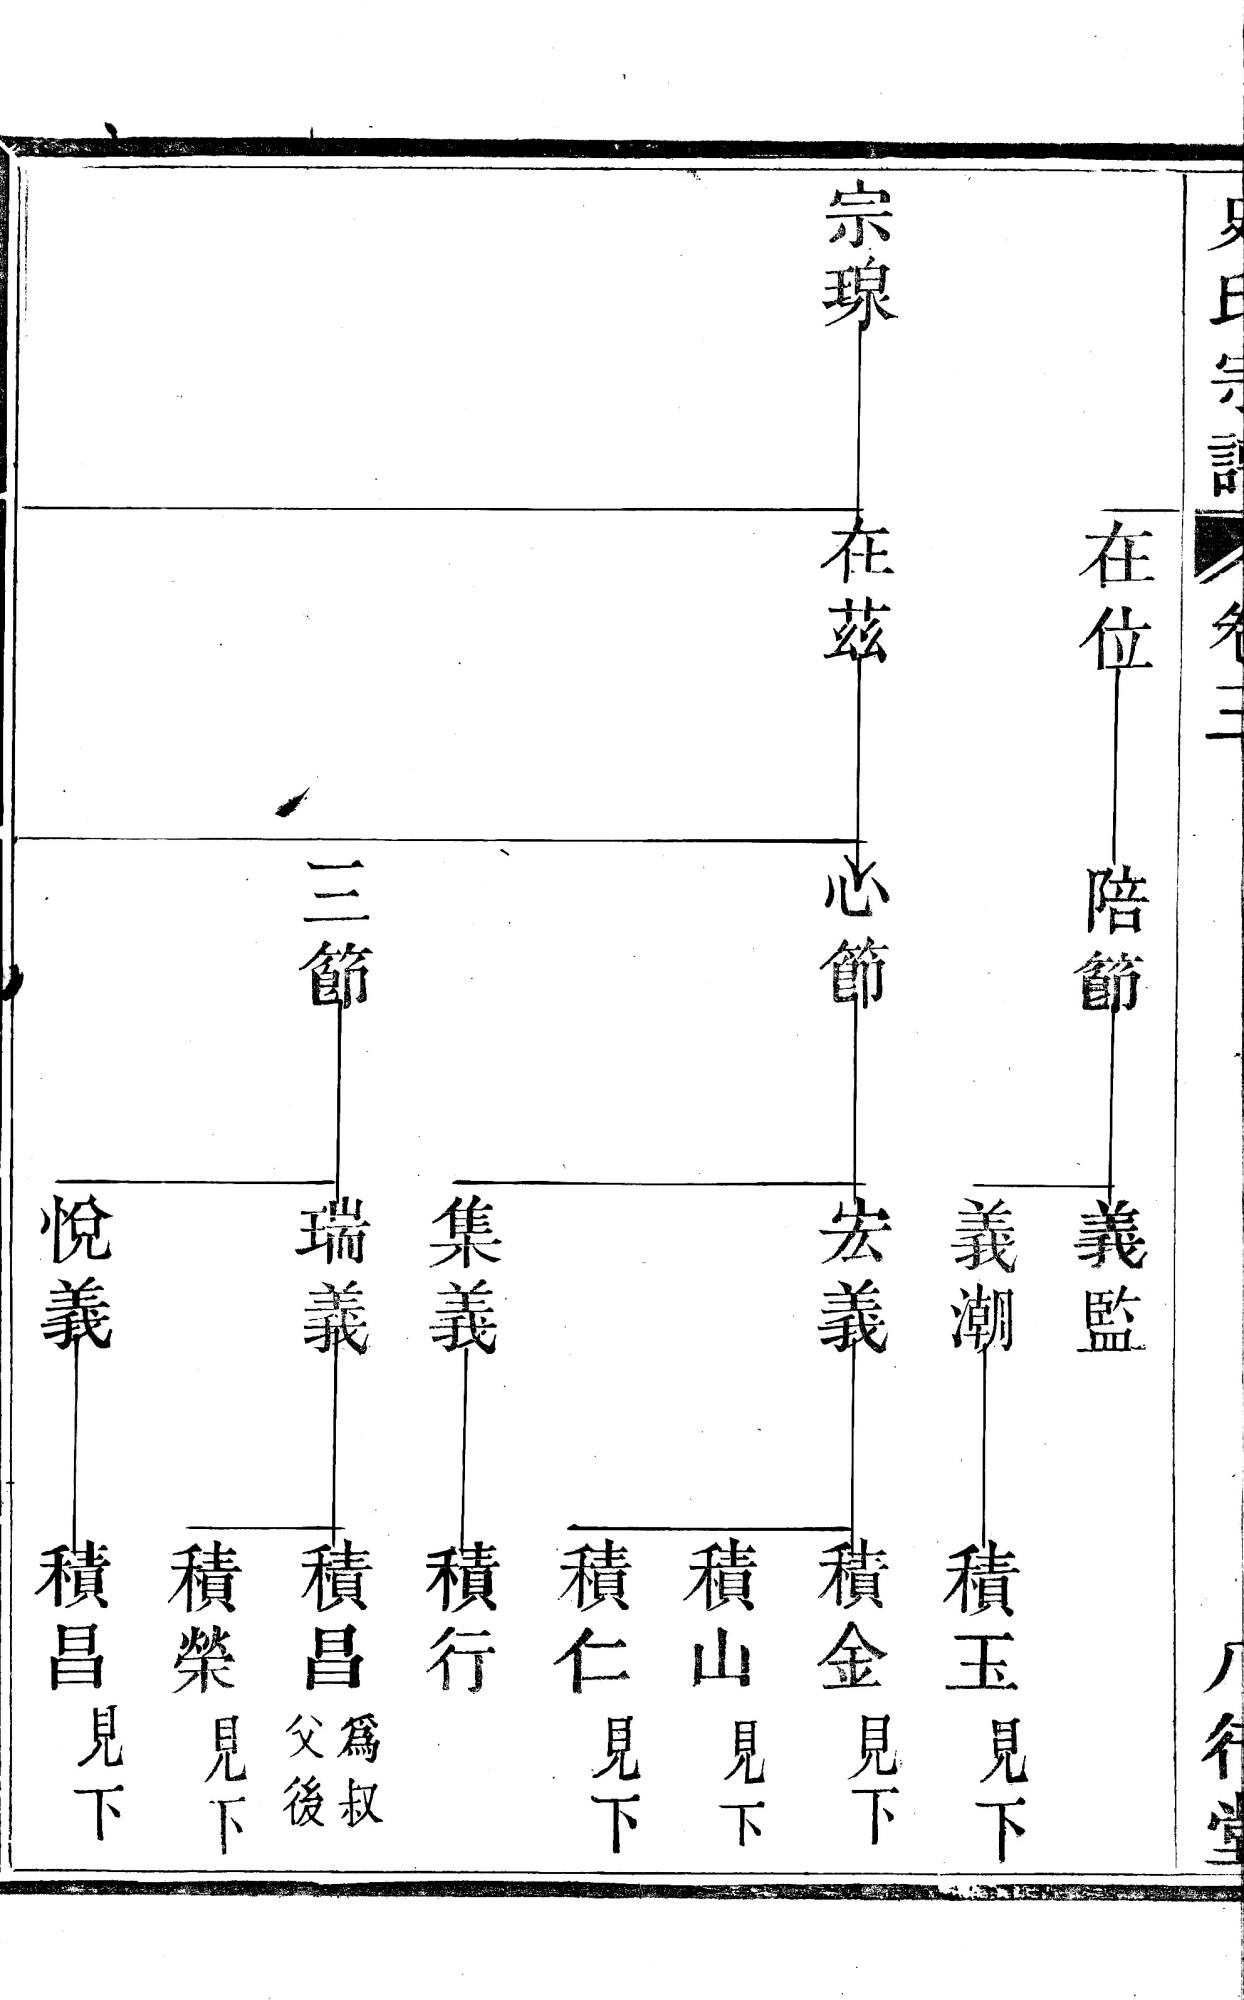 史氏宗譜
卷三
八行堂
在位
陪節
義監
義潮
積玉 見下
宗瑔
在茲
心節
宏義
積金 見下
積山 見下
積仁 見下
集義
積行
三節
瑞義
積昌 爲叔父後
積榮 見下
悅義
積昌 見下